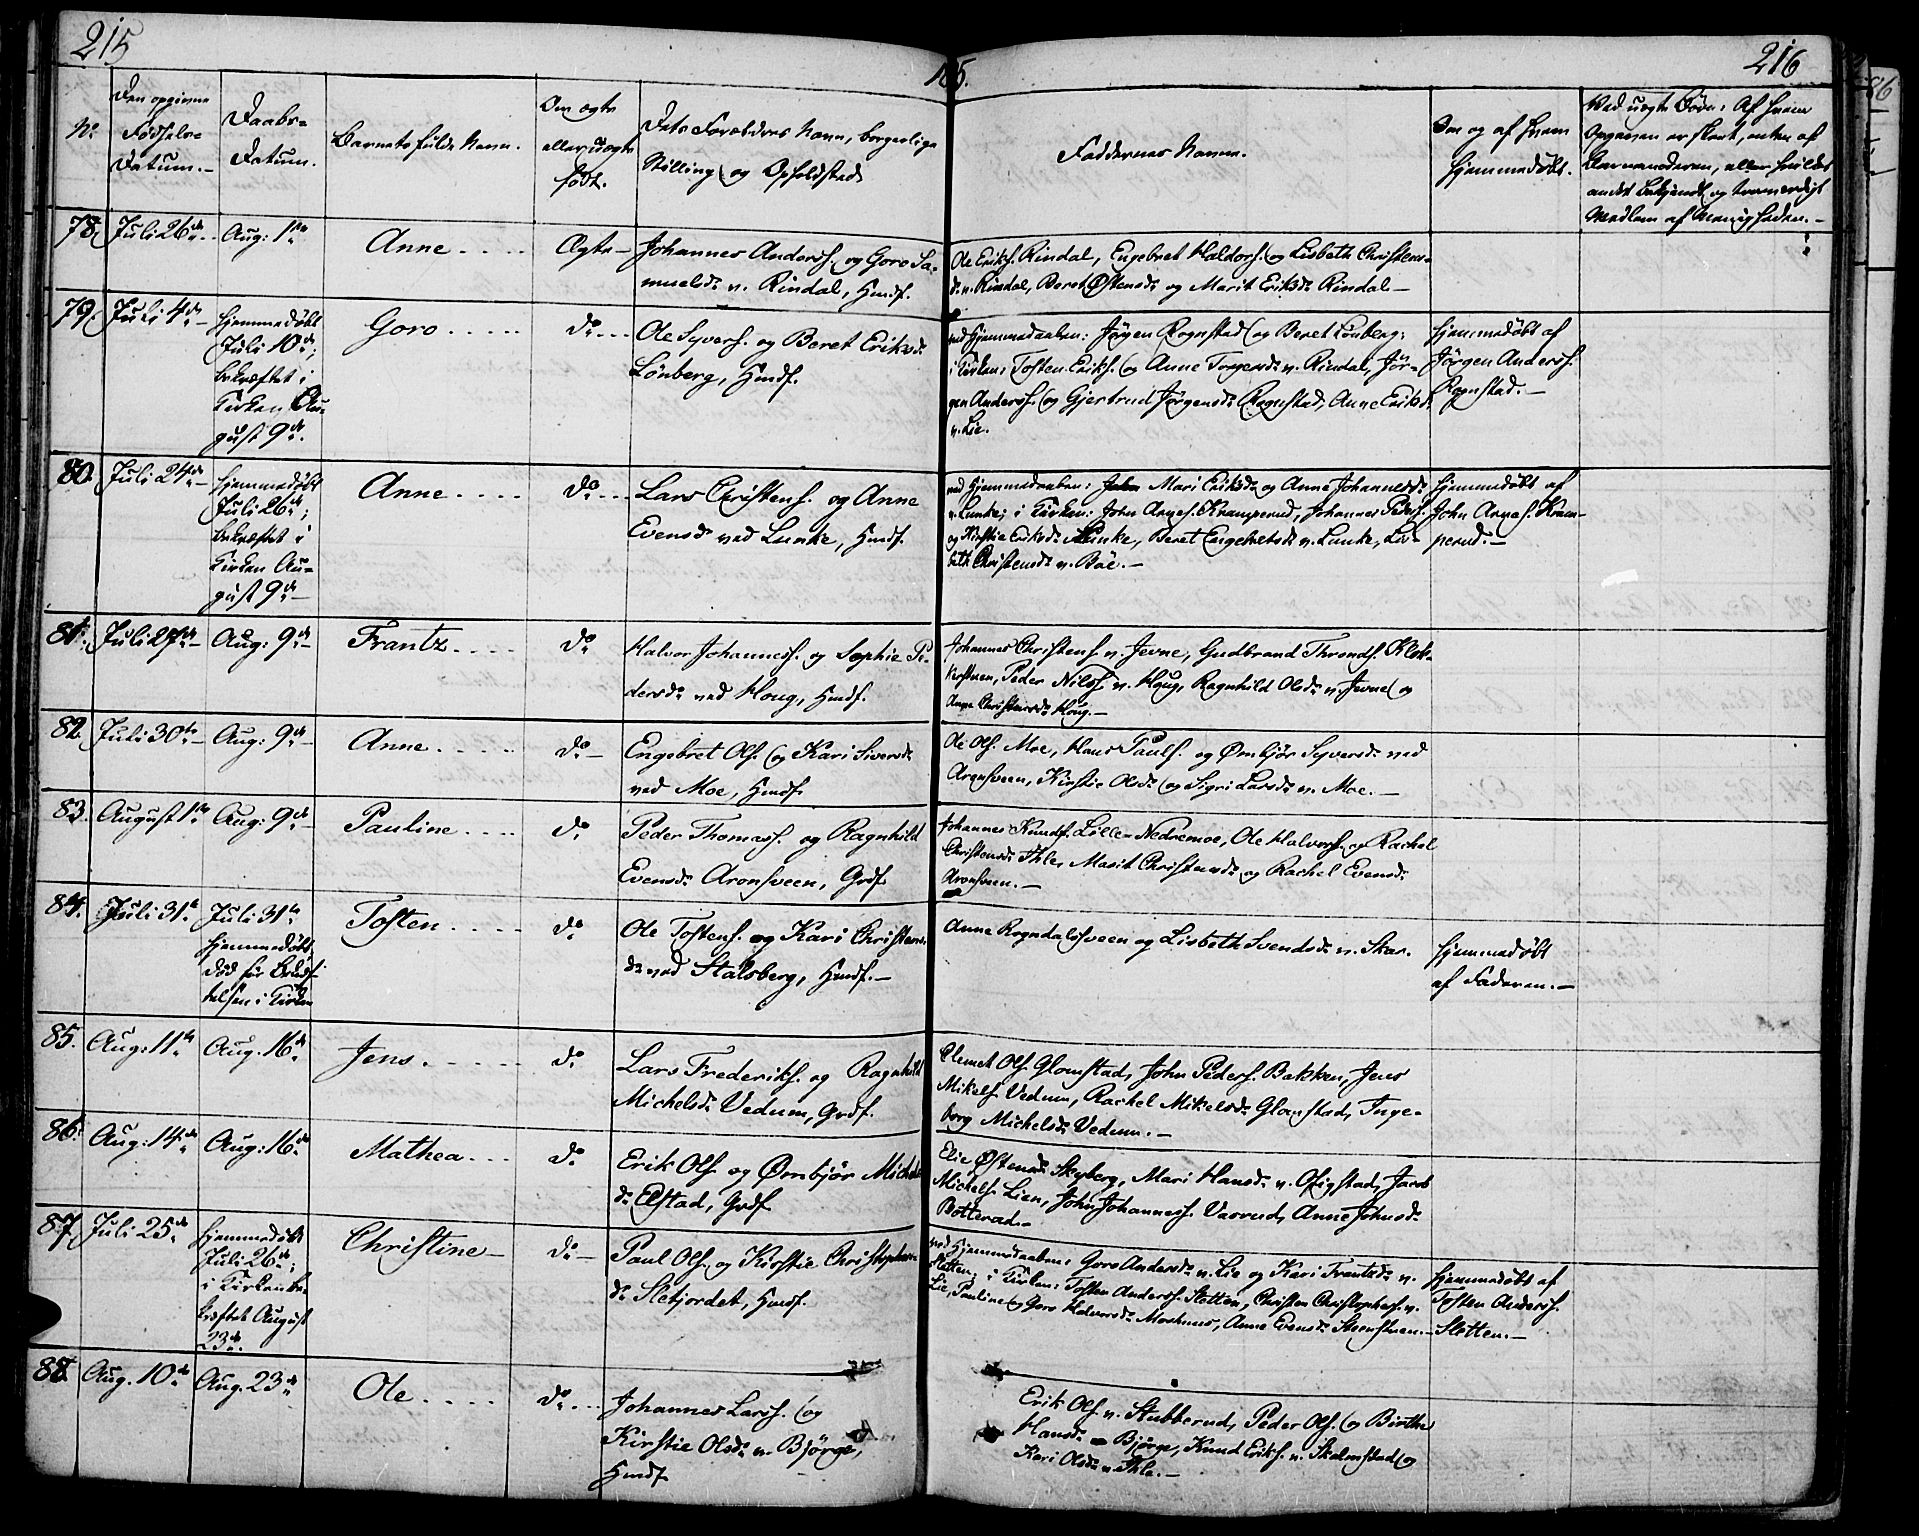 215
185.
216
No
Den opgivne Fødselsdatum.
Daabs-Datum.
Barnets fulde Navn.
Om ægte eller uægte født.
Dets Forældres Navn, borgerlige Stilling og Opholdsted
Faddernes Navne.
Om og af hvem hjemmedøbt.
Ved uægte Børn: Af hvem
Opgaven er skeet, enten af
Barnemoderen, eller hvilket
andet bekjendt og troværdigt
Medlem af Menigheden.
78. Juli 26de Aug: 1ste Anne Ægte
Johannes Anders. og Goro Sa-
muelsd. v. Rindal, Hmdf.
Ole Eriks. Rindal, Engebret Haldors. og Lisbeth Christens-
d. v. Rindal, Beret Østensd. og Marit Eriksd. Rindal
79. Juli 4de
Hjemmedøbt
Juli 10de;
bekræftet i
Kirken Au-
gust 9de.
Goro do
Ole Syvers. og Beret Eriksd.
Lönberg, Hmdf.
ved Hjemmedaaben: Jörgen Rognstad og Beret Lönberg;
i Kirken: Tosten Eriks. og Anne Torgersd. v. Rindal, Jör-
gen Anders. og Gjertrud Jörgensd. Rognstad, Anne Eriksd.
v. Lie.
Hjemmedøbt af
Jörgen Anders.
Rognstad.
80. Juli 24de
Hjemmedøbt
Juli 26de;
bekræftet i
Kirken Au-
gust 9de
Anne do
Lars Christens. og Anne
Evensd. ved Lunke, Hmdf.
ved Hjemmedaaben: Mari Eriksd. og Anne Johannesd.
v. Lunke; i Kirken: John Arnes. Kramperud, Johannes Peders.
og Kirstie Eriksd. Lunke, Beret Engebretsd. v. Lunke, Lis-
beth Christensd. v. Böe.
Hjemmedøbt af
John Arnes. Kram-
perud.
81. Juli 27de Aug: 9de Frantz do
Halvor Johanness. og Sophie Pe-
dersd. ved Houg, Hmdf.
Johannes Christens. v. Jevne, Gudbrand Thronds. Klok-
kersveen, Peder Nils. v. Houg, Ragnhild Olsd. v. Jevne og
Anne Christensd. Houg.
82. Juli 30te Aug: 9de Anne do
Engebret Ols. og Kari Siversd.
ved Moe, Hmdf.
Ole Ols. Moe, Hans Pauls. og Ørnbjör Syversd. ved
Aronsveen, Kirstie Olsd. og Sigri Larsd. v. Moe.
83. August 1ste Aug: 9de Pauline do
Peder Thomass. og Ragnhild
Evensd. Aronsveen, Grdf.
Johannes Knuds. Lille-Nedremoe, Ole Halvors. og Rachel
Christensd. Ihle, Marit Christensd. og Rachel Evensd.
Aronsveen.
84. Juli 31te
Juli 31te
hjemmedøbt,
död før Bekræf-
telsen i Kirken
Tosten do
Ole Tostens. og Kari Christens-
d. ved Stalsberg, Hmdf.
Anne Rogndalssveen og Lisbeth Svendsd. v. Skar.
Hjemmedøbt
af Faderen.
85. Aug: 11te Aug. 16de Jens do
Lars Frederiks. og Ragnhild
Michelsd. Vedum, Grdf.
Clemet Ols. Glomstad, John Peders. Bakken, Jens
Mikels. Vedum, Rachel Mikelsd. Glomstad, Inge-
borg Michelsd. Vedum.
86. Aug: 14de Aug: 16de Mathea do
Erik Ols. og Ørnbjör Michels-
d. Elstad, Grdf.
Elie Østensd. Skyberg, Mari Hansd. v. Ofigstad, Jacob
Michels. Lien, John Johanness. Vasrud, Anne Johnsd.
Botterud.
87. Juli 25de
Hjemmedøbt
Juli 26de;
i Kirken be-
kræftet August
23de.
Christine do
Paul Ols. og Kirstie Christophers-
d. Sletjordet, Hmdf.
ved Hjemmedaaben: Goro Andersd. v. Lie og Kari Frantsd. v.
Sletten; i Kirken: Tosten Anders. Sletten, Christen Christophers. v.
Lie, Pauline og Goro Halvorsd. Moshuus, Anne Evensd. Steensveen.
Hjemmedøbt af
Tosten Anders.
Sletten.
88. Aug. 10de Aug. 23de Ole do
Johannes Lars. og
Kirstie Olsd. v. Bjørge,
Hmdf.
Erik Ols. v. Stubberud, Peder Ols. og Birthe
Hansd. Bjørge, Knud Eriks. v. Skalmstad og
Kari Olsd. v. Ihle.
86